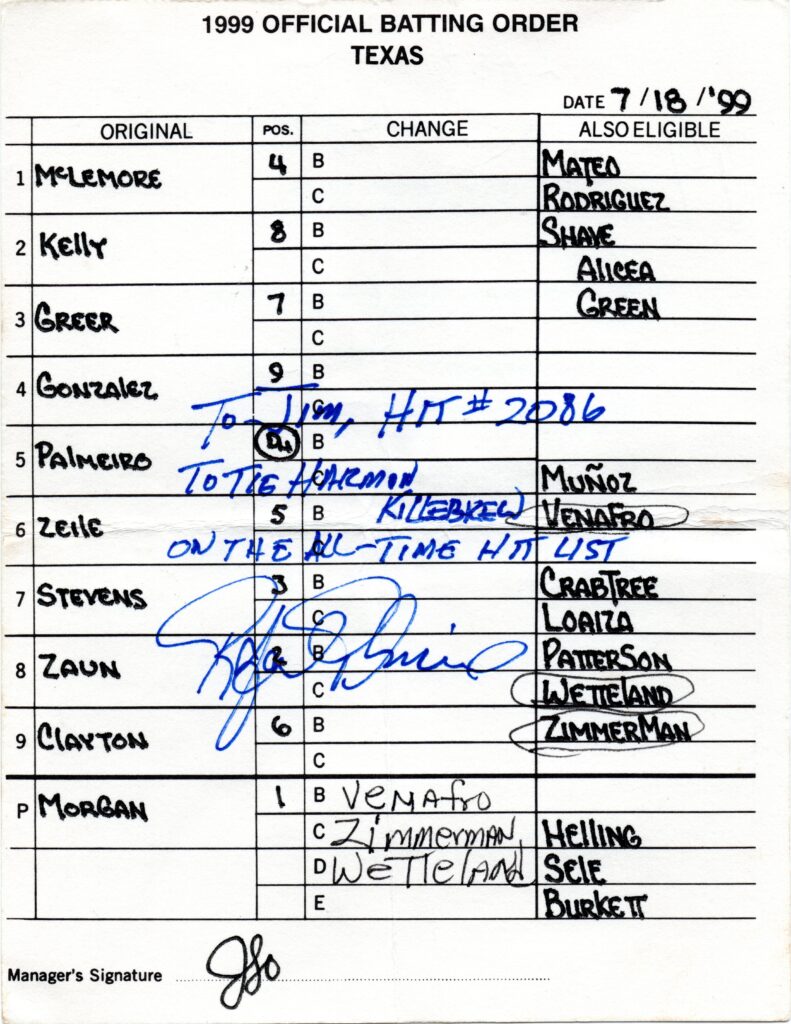 1999 OFFICIAL BATTING ORDER
TEXAS
DATE 7/18/'99
ORIGINAL POS. CHANGE ALSO ELIGIBLE
1 McLEMORE 4 B MATEO
C RODRIGUEZ
2 KELLY 8 B SHAVE
C ALICEA
3 GREER 7 B GREEN
C
4 GONZALEZ 9 B
C
To Jim, HIT # 2086
5 PALMEIRO DH B
C MUÑOZ
TO TIE HARMON
KILLEBREW
6 ZEILE 5 B VENAFRO
C
ON THE ALL-TIME HIT LIST
7 STEVENS 3 B CRABTREE
C LOAIZA
8 ZAUN 2 B PATTERSON
C WETTELAND
9 CLAYTON 6 B ZIMMERMAN
C
P MORGAN 1 B VENAFRO
C Zimmerman HELLING
D WETTELAND SELE
E BURKETT
Manager's Signature